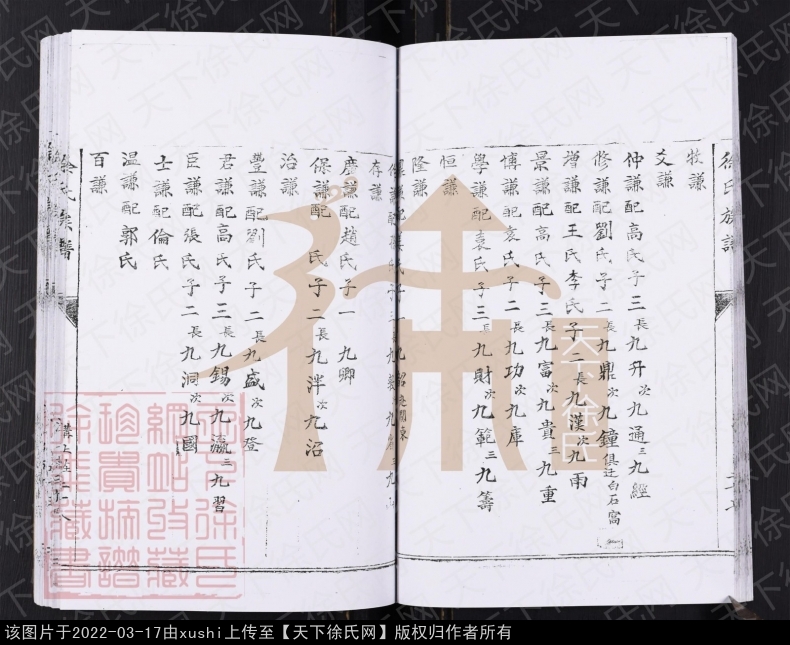 徐氏族譜
牧謙
爻謙
仲謙配高氏子三長九升次九通三九經
修謙配劉氏子二長九鼎次九鐘俱迁白石窩
增謙配王氏李氏子二長九漢次九雨
景謙配高氏子三長九富次九貴三九重
博謙配袁氏子二長九功次九庫
學謙配袁氏子三長九財次九範三九籌
恒謙
隆謙
存謙
慶謙配趙氏子一九卿
保謙配 氏子二長九泮次九沼
治謙
豐謙配劉氏子二長九盛次九登
君謙配高氏子三長九錫次九瀛三九習
臣謙配張氏子二長九洞次九國
士謙配倫氏
温謙配郭氏
百謙
徐氏族譜
天下徐氏
天下徐氏网
该图片于2022-03-17由xushi上传至【天下徐氏网】版权归作者所有